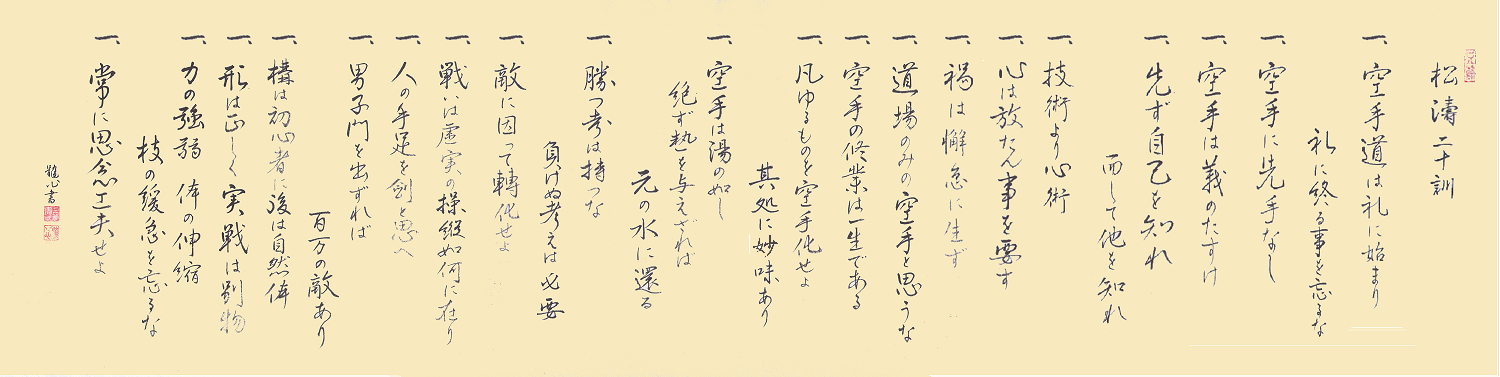 松濤二十訓
一、空手道は礼に始まり
礼に終る事を忘るな
一、空手に先手なし
一、空手は義のたすけ
一、先ず自己を知れ
而して他を知れ
一、技術より心術
一、心は放たん事を要す
一、禍は懈怠に生ず
一、道場のみの空手と思うな
一、空手の修業は一生である
一、凡ゆるものを空手化せよ
其処に妙味あり
一、空手は湯の如し
絶ず熱を与えざれば
元の水に還る
一、勝つ考は持つな
負けぬ考えは必要
一、敵に因って轉化せよ
一、戦は虚実の操縦如何に在り
一、人の手足を剣と思へ
一、男子門を出ずれば
百万の敵あり
一、構は初心者に後は自然体
一、形は正しく実戦は別物
一、力の強弱 体の伸縮
技の緩急を忘るな
一、常に思念工夫せよ